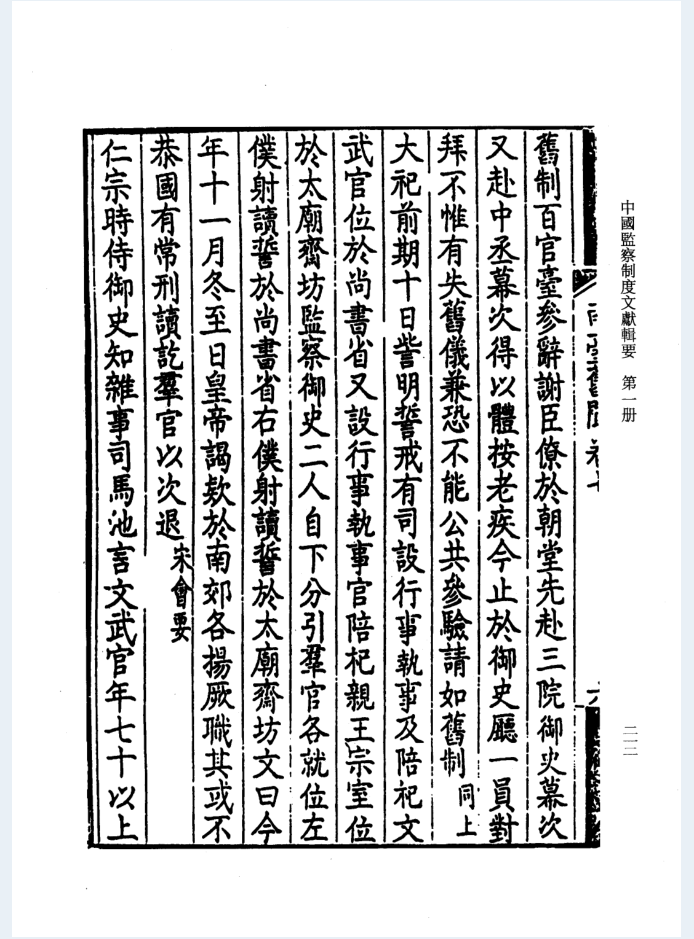 中國監察制度文獻輯要 第一册
二一二
舊制百官臺參辭謝臣僚於朝堂先赴三院御史幕次
又赴中丞幕次得以體按老疾今止於御史廳一員對
拜不惟有失舊儀兼恐不能公共參驗請如舊制同上
大祀前期十日誓明誓戒有司設行事執事及陪祀文
武官位於尚書省又設行事執事官陪祀親王宗室位
於太廟齋坊監察御史二人自下分引羣官各就位左
僕射讀誓於尚書省右僕射讀誓於太廟齋坊文曰今
年十一月冬至日皇帝謁欵於南郊各揚厥職其或不
恭國有常刑讀訖羣官以次退宋會要
仁宗時侍御史知雜事司馬池言文武官年七十以上